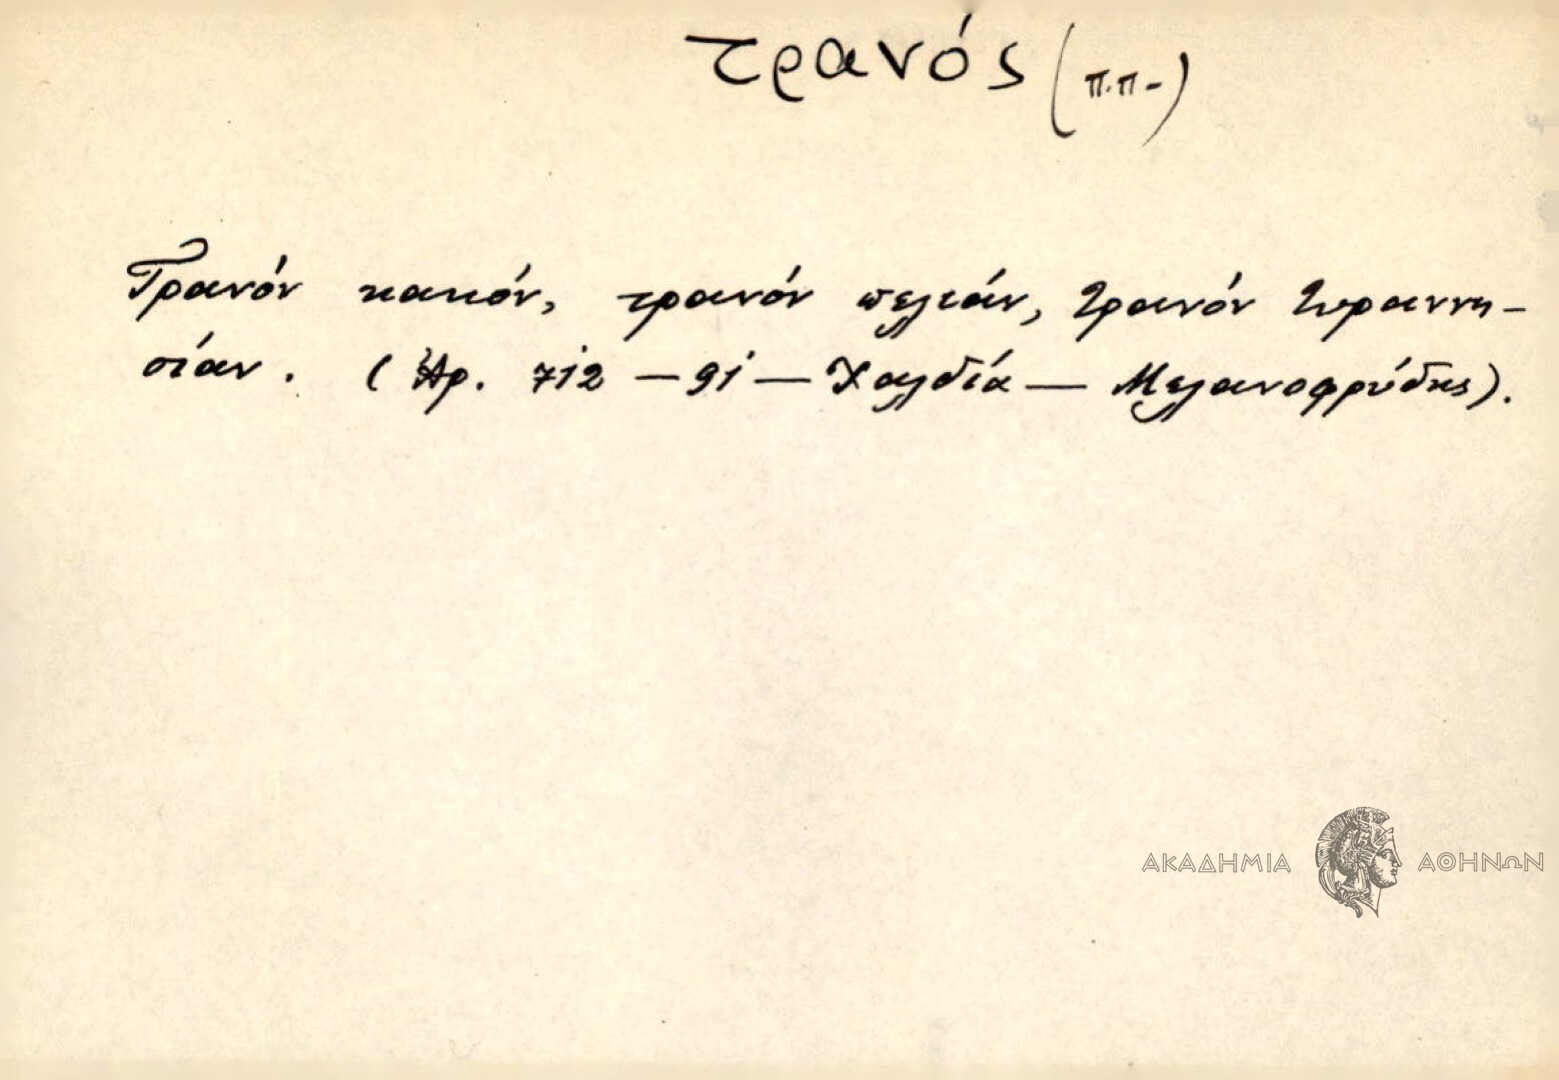 τρανός (π.π-)
Τρανόν κακόν, τρανόν πελιάν, τρανόν τυραννη-
σίαν. (Ἀρ. 712 — 91 — Χαλδία — Μελανοφρύδης).
ΑΚΑΔΗΜΙΑ ΑΘΗΝΩΝ